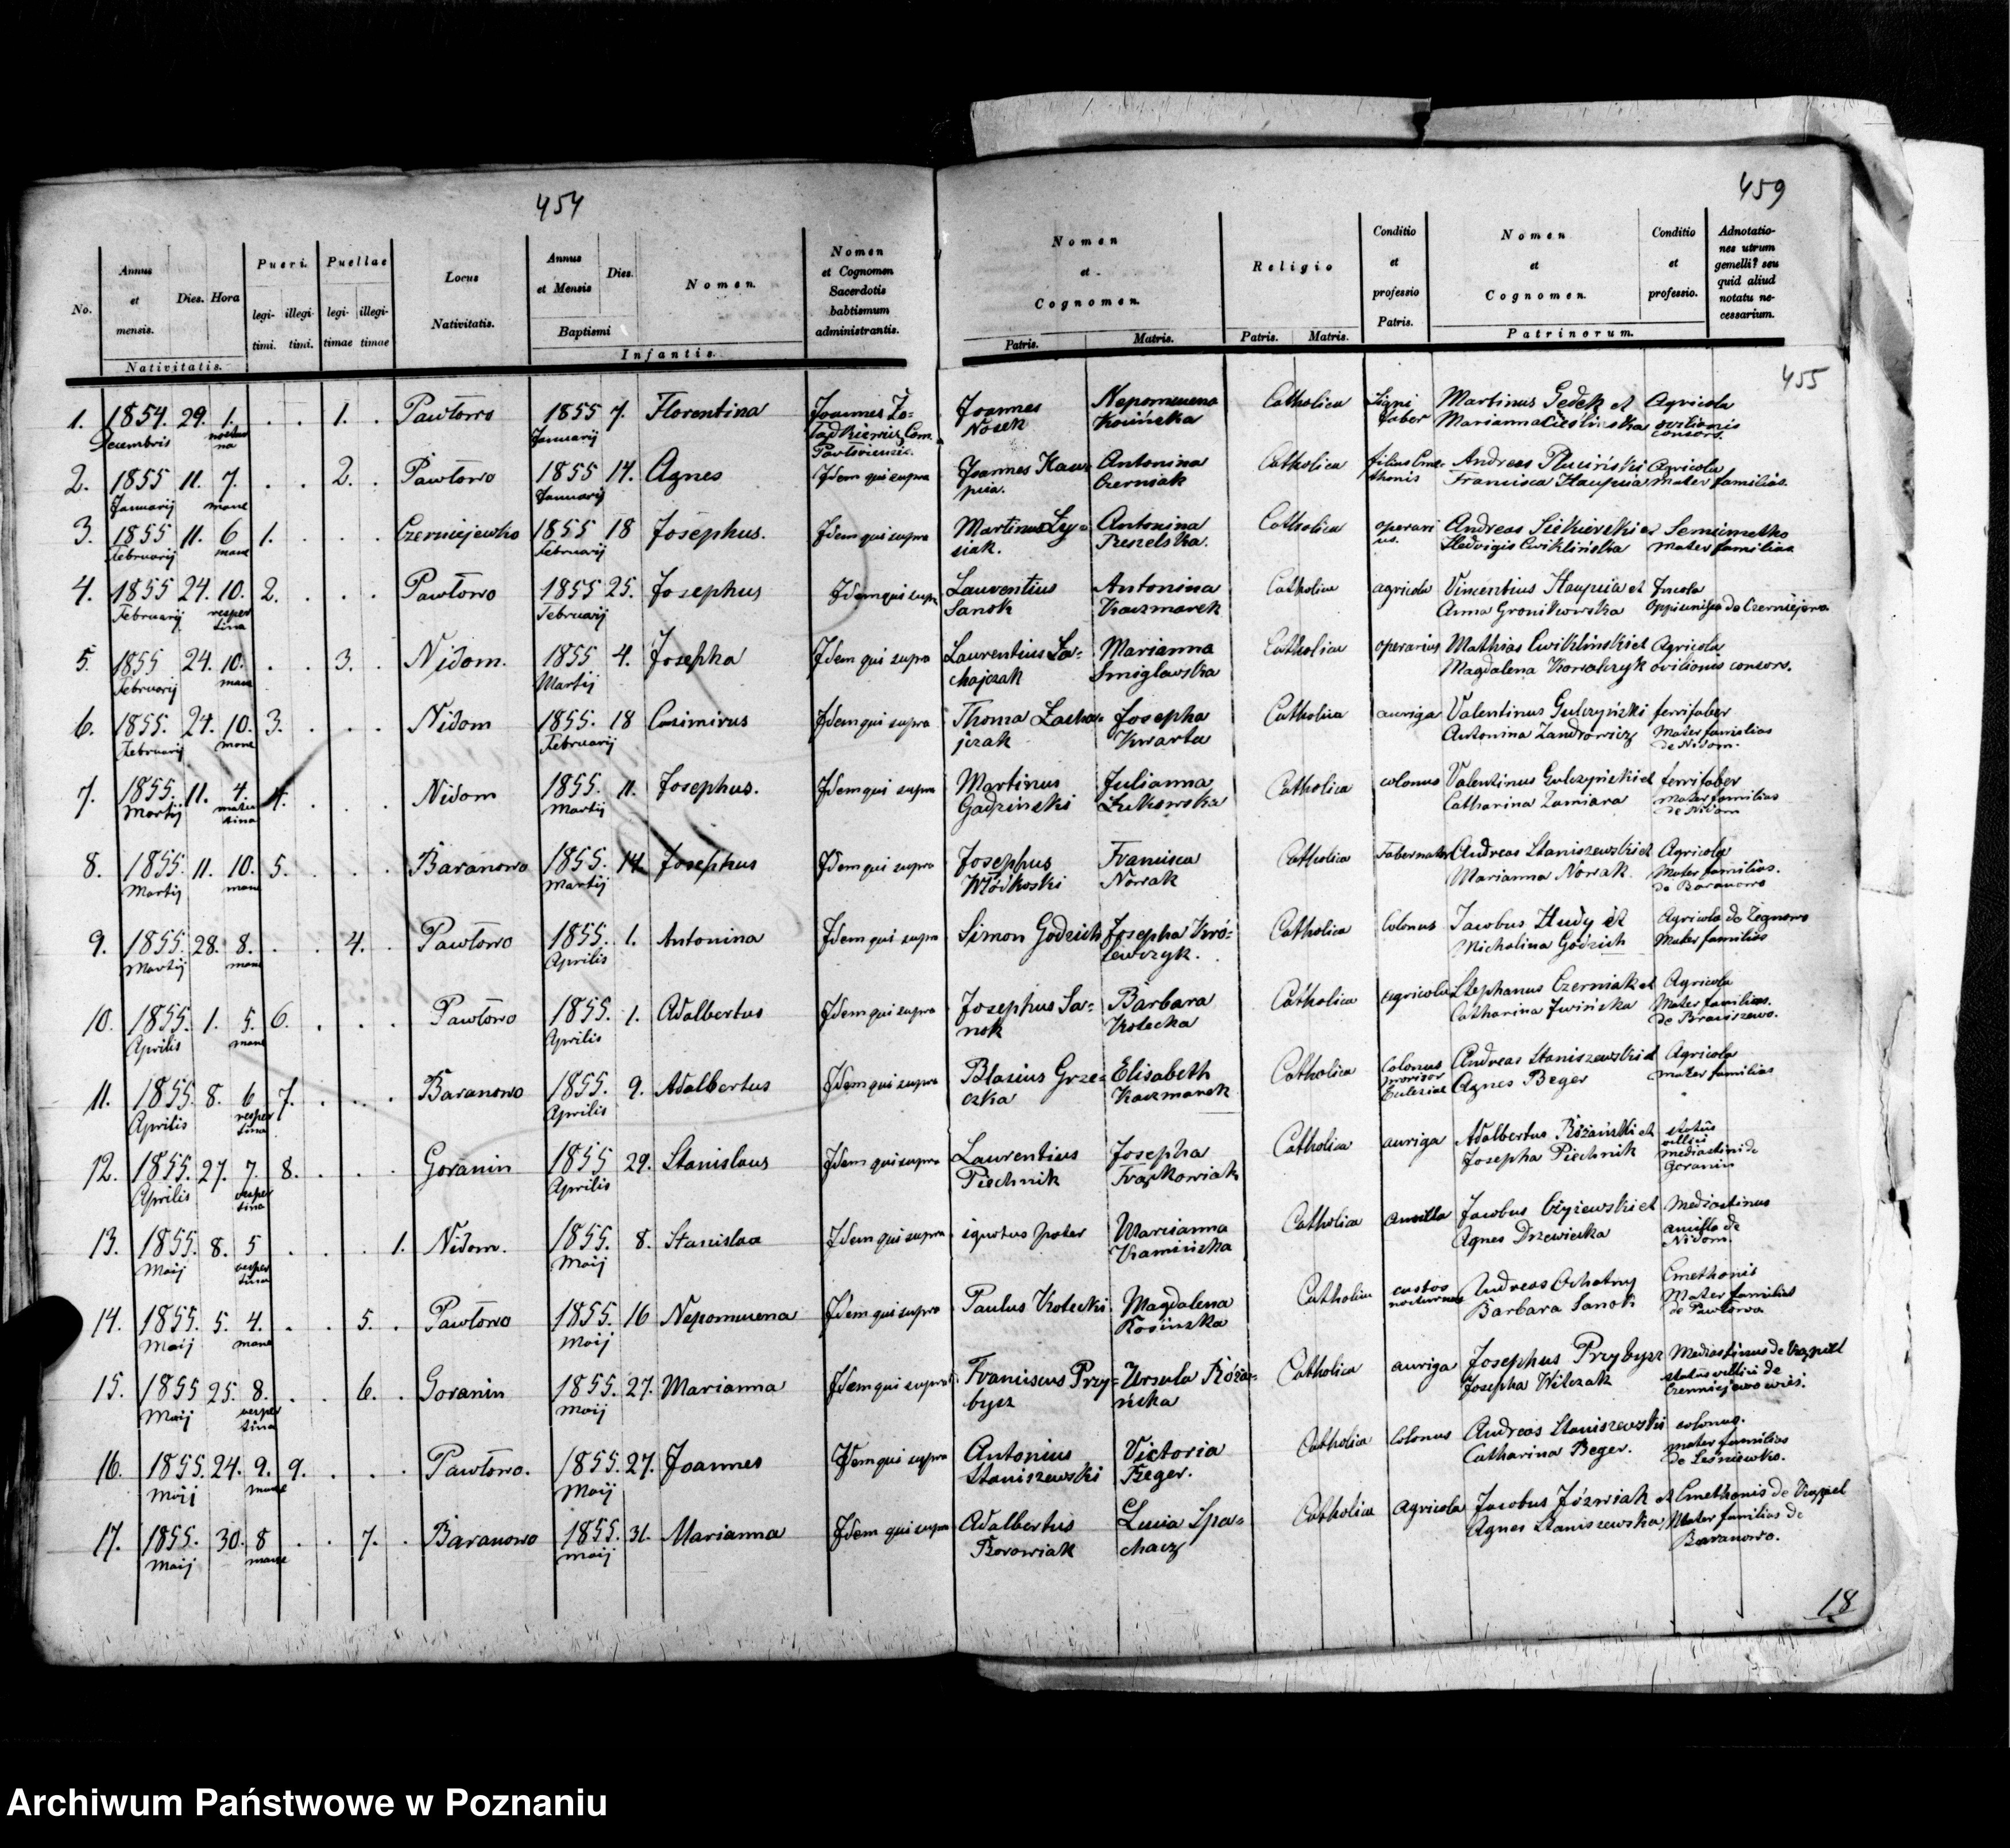 454
459
No.
Annus et mensis.
Dies.
Hora
Nativitatis.
Pueri.
legitimi.
illegitimi.
Puellae
legitimae
illegitimae
Locus Nativitatis.
Annus et Mensis
Dies.
Baptismi
Nomen.
Infantis.
Nomen et Cognomen Sacerdotis babtismum administrantis.
Nomen et Cognomen.
Patris.
Matris.
Religio
Patris.
Matris.
Conditio et professio Patris.
Nomen et Cognomen.
Conditio et professio.
Patrinorum.
Adnotationes utrum gemelli? seu quid aliud notatu necessarium.
455
1. 1854. Decembris 29. 1. . . 1. . Pawłowo 1855 Januarij 7. Florentina Joannes Joannes Nosek Nepomucena Catholica Ligni faber Martinus Gedek et Agricola Marianna Cieślińska ovilionis consors.
2. 1855 Januarij 11. 7. mane . . 2. . Pawłowo 1855 Januarij 14. Agnes Idem qui supra Joannes Haupia. Antonina Czerniak Catholica filius Cmethonis Andreas Pluciński Agricola Francisca Haupia mater familias.
3. 1855 Februarij 11. 6 mane 1. . . . Czerniejewko 1855 Februarij 18 Josephus. Idem qui supra Martinus Łysiak. Antonina Catholica operarius. Andreas Siekierski et Semicmetho Hedvigis Cwiklińska mater familias
4. 1855 Februarij 24. 10. vespertina 2. . . . Pawłowo 1855 Februarij 25. Josephus Idem qui supra Laurentius Sanok Antonina Kaczmarek Catholica agricola Vincentius Haupia et Incola Anna Gronikowska de Czerniejewo
5. 1855 Februarij 24. 10. mane . . 3. . Nidom. 1855 Martij 4. Josepha Idem qui supra Laurentius Lachajczak Marianna Smiglawska Catholica operarius Mathias Cwikliński et Agricola Magdalena Kowalczyk ovilionis consors.
6. 1855. Februarij 24. 10. mane 3. . . . Nidom 1855. Februarij 18 Casimirus Idem qui supra Thoma Lachajczak Josepha Kwarta Catholica auriga Valentinus Gulczyński ferrifaber Antonina Zandrowicz Mater familias de Nidom.
7. 1855. Martij 11. 4. matutina 4. . . . Nidom 1855. Martij 11. Josephus. Idem qui supra Martinus Gadzinski Julianna Żukowska Catholica colonus Valentinus Gulczyński et ferrifaber Catharina Zamiara Mater familias de Nidom
8. 1855. Martij 11. 10. mane 5. . . . Baranowo 1855. Martij 14. Josephus Idem qui supra Josephus Włódkoski Francisca Nowak Catholica Andreas Staniszewski et Agricola Marianna Nowak Mater familias. de Baranowo
9. 1855. Martij 28. 8. mane . . 4. . Pawłowo 1855. Aprilis 1. Antonina Idem qui supra Simon Godzich Josepha Królewczyk. Catholica Colonus Jacobus Hudy et Agricola de Zegnowo Micholina Godzich Mater familias
10. 1855. Aprilis 1. 5. mane 6. . . . Pawłowo 1855. Aprilis 1. Adalbertus Idem qui supra Josephus Sanok Barbara Kotecka Catholica agricola Stephanus Czerniak et Agricola Catharina Iwińska Mater familias.
11. 1855. Aprilis 8. 6 vespertina 7. . . . Baranowo 1855. Aprilis 9. Adalbertus Idem qui supra Blasius Grzeczka Elisabeth Kaczmarek Catholica Colonus Andreas Staniszewski et Agricola Agnes Beger mater familias
12. 1855. Aprilis 27. 7. vespertina 8. . . . Goranin 1855 Aprilis 29. Stanislaus Idem qui supra Laurentius Piechnik Josepha Frąckowiak Catholica auriga Adalbertus Różański et Josepha Piechnik mediastini de Goranin
13. 1855. Maij 8. 5 vespertina . . . 1. Nidom. 1855. Maij 8. Stanislaa Idem qui supra ignotus pater Marianna Kamińska Catholica Ancilla Jacobus Czyżewski et Mediastinus Agnes Drzewiecka ancilla de Nidom.
14. 1855. Maij 5. 4. mane . . 5. . Pawłowo 1855. Maij 16 Nepomucena Idem qui supra Paulus Kotecki Magdalena Kosinska Catholica custos nocturnus Andreas Ochotny Cmethonis Barbara Sanok Mater familias de Pawłowa
15. 1855 Maij 25. 8. vespertina . . 6. . Goranin 1855. Maij 27. Marianna Idem qui supra Franciscus Przybysz Ursula Różańska Catholica auriga Josephus Przybysz Mediastinus de Josepha Wilczak status villici de
16. 1855. Maij 24. 9. mane 9. . . . Pawłowo. 1855. Maij 27. Joannes Idem qui supra Antonius Staniszewski Victoria Beger. Catholica Colonus Andreas Staniszewski colonus. Catharina Beger. mater familias de Leśniewko.
17. 1855. Maij 30. 8 mane . . 7. . Baranowo 1855. Maij 31. Marianna Idem qui supra Adalbertus Borowiak Lucia Spachacz Catholica Agricola Jacobus Józwiak et Cmethonis de Agnes Staniszewska Mater familias de Baranowo.
18
Archiwum Państwowe w Poznaniu